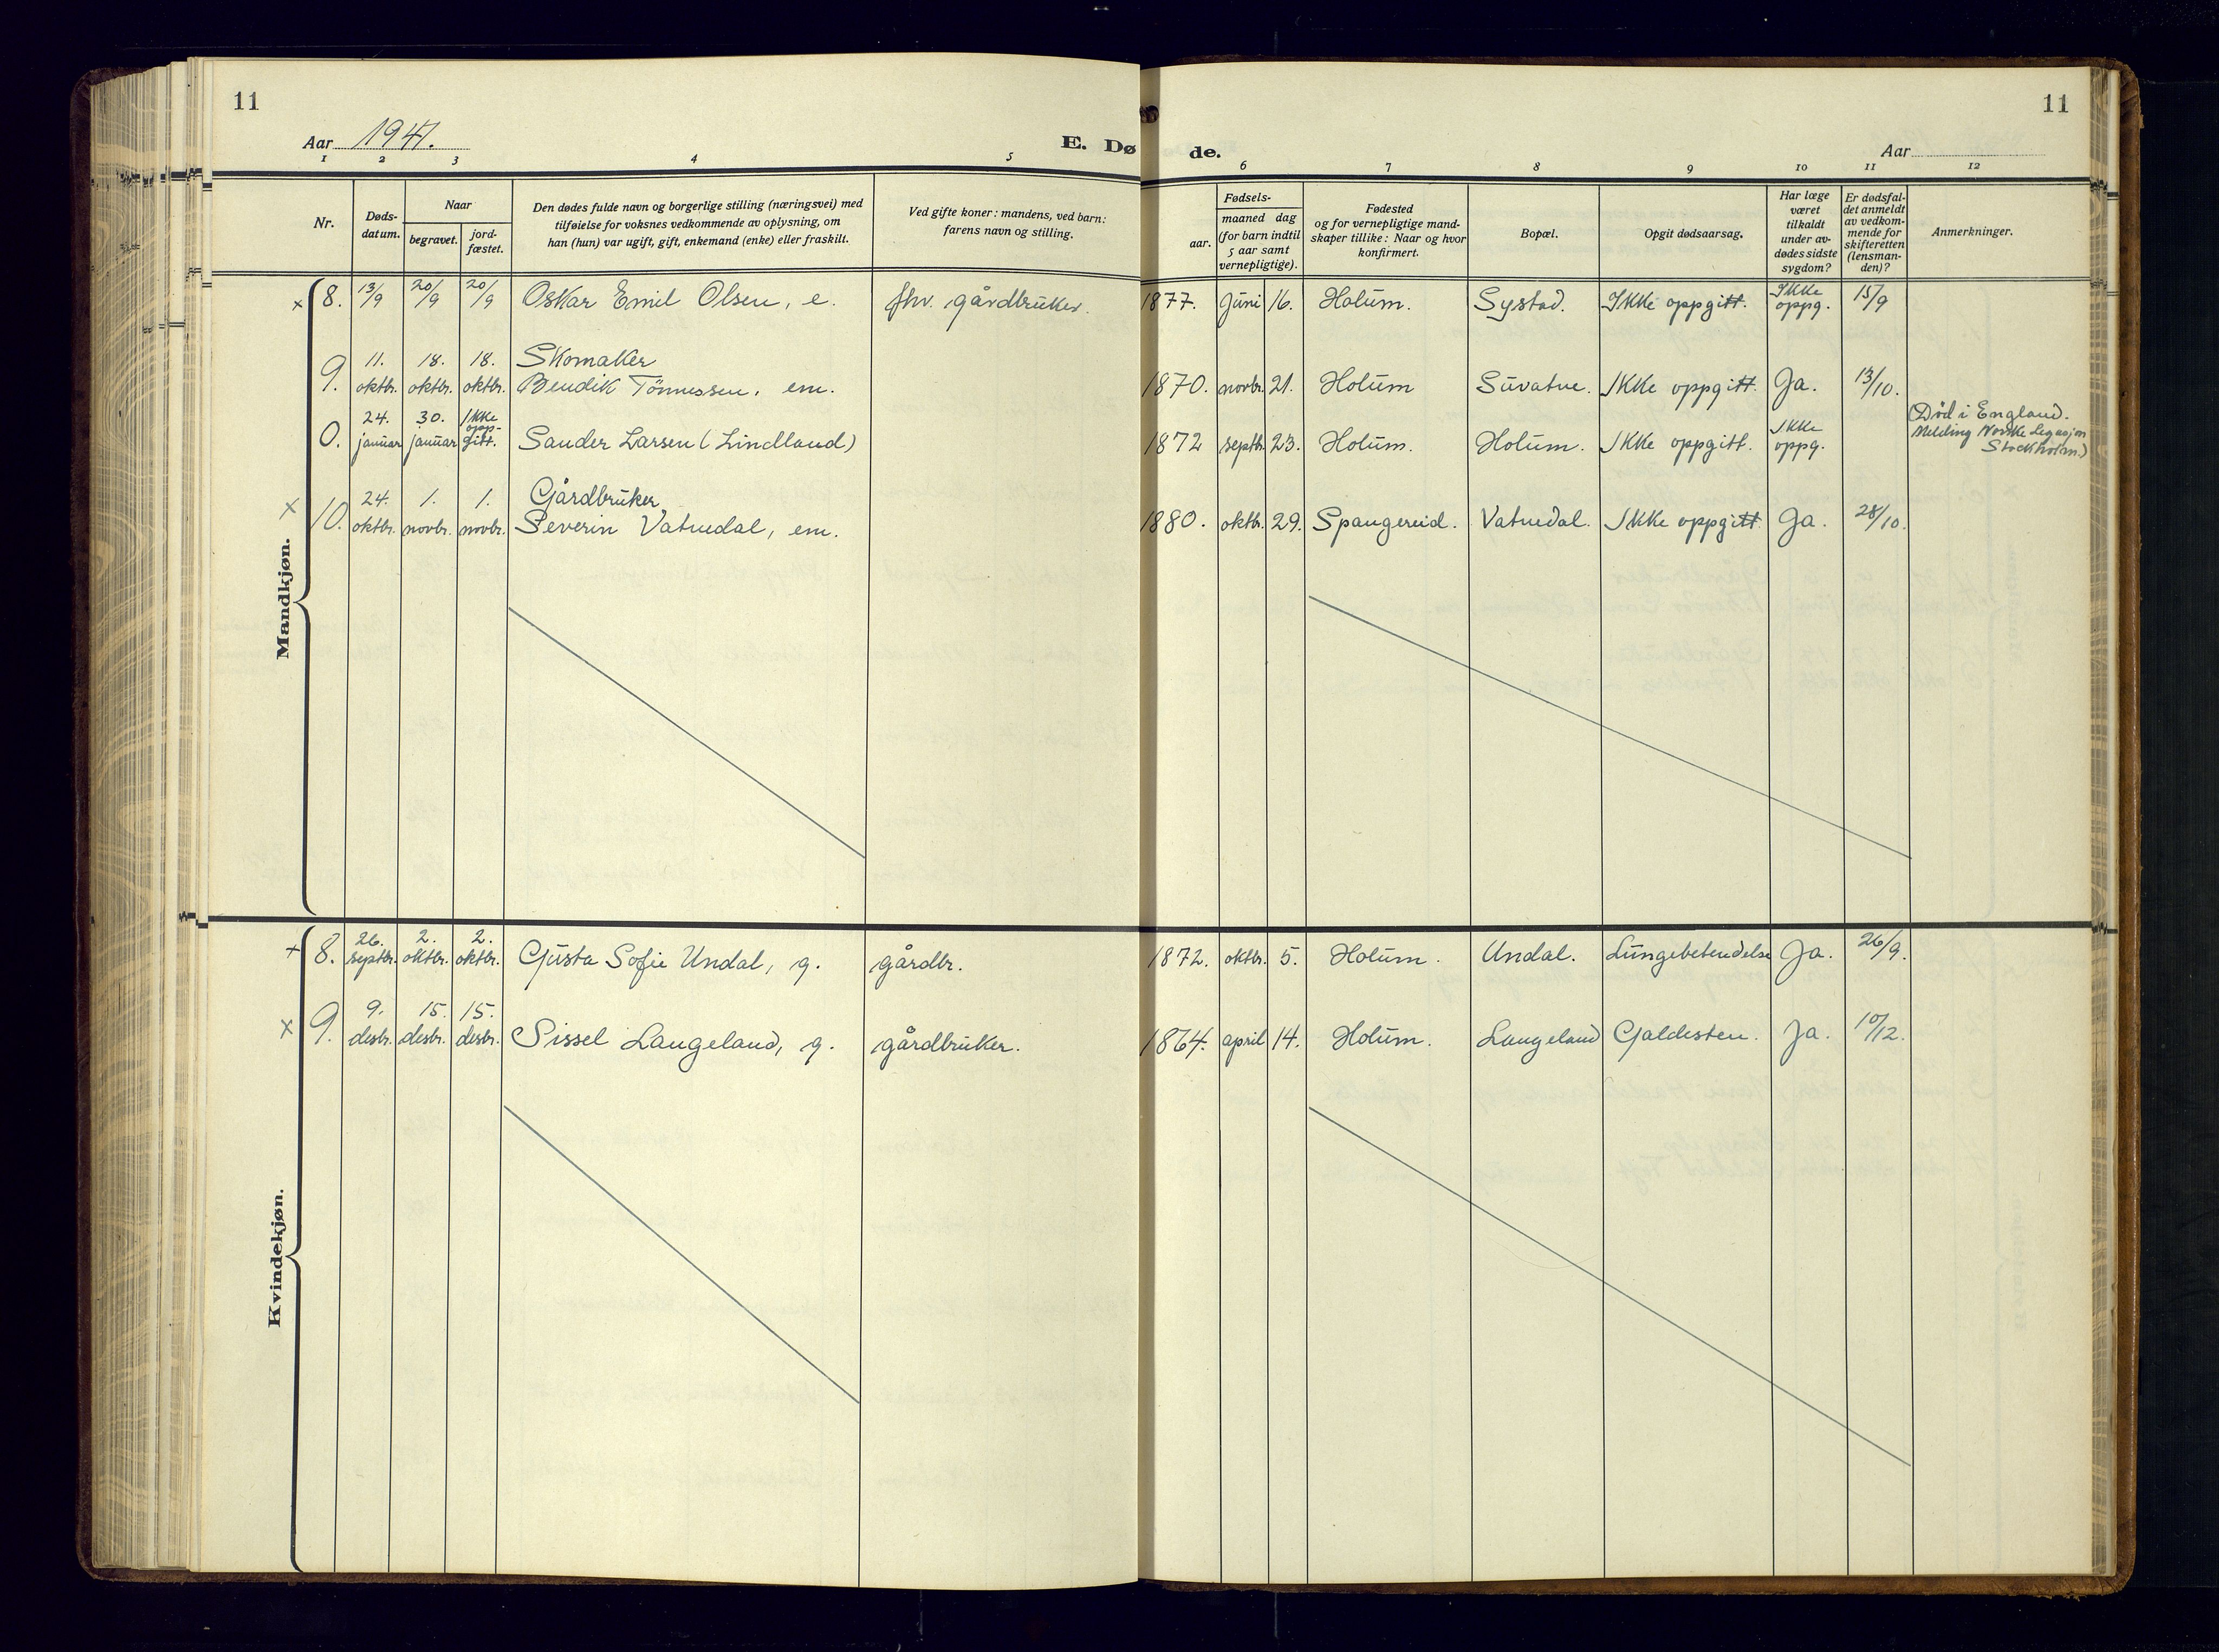 11
11
Aar 1941.
E. Dø
de.
Aar
1 2 3 4 5 6 7 8 9 10 11 12
Nr.
Døds-
datum.
Naar
begravet.
jord-
fæstet.
Den dødes fulde navn og borgerlige stilling (næringsvei) med
tilføielse for voksnes vedkommende av oplysning, om
han (hun) var ugift, gift, enkemand (enke) eller fraskilt.
Ved gifte koner: mandens, ved barn:
farens navn og stilling.
Fødsels-
aar.
maaned dag
(for barn indtil
5 aar samt
vernepligtige).
Fødested
og for vernepligtige mand-
skaper tillike: Naar og hvor
konfirmert.
Bopæl.
Opgit dødsaarsag.
Har læge
været
tilkaldt
under av-
dødes sidste
sygdom?
Er dødsfal-
det anmeldt
av vedkom-
mende for
skifteretten
(lensman-
den)?
Anmerkninger.
Mandkjøn.
x 8. 13/9 20/9 20/9 Oskar Emil Olsen, e. fhv. gårdbruker. 1877. juni 16. Holum. Systad. Ikke oppgitt. Ikke oppg. 15/9
9. 11. oktbr. 18. oktbr. 18. oktbr. Skomaker
Bendik Tönnessen, em. 1870. novbr. 21. Holum Suvatne. Ikke oppgitt. Ja. 13/10.
0. 24. januar 30. januar Ikke opp-gitt. Sander Larsen (Lindland) 1872 septbr. 23. Holum. Holum. Ikke oppgitt. Ikke oppg.
(Død i England.
Melding Norske Legasjon
Stockholm.)
x 10. 24. oktbr. 1. novbr. 1. novbr. Gårdbruker
Severin Vatnedal, em. 1880. oktbr. 29. Spangereid. Vatnedal. Ikke oppgitt Ja. 28/10.
Kvindekjøn.
+ 8. 26. septbr. 2. oktbr. 2. oktbr. Gusta Sofie Undal, g. gårdbr. 1872. oktbr. 5. Holum. Undal. Lungebetendelse Ja. 26/9.
x 9. 9. desbr. 15. desbr. 15. desbr. Sissel Langeland, g. gårdbruker. 1864. april 14. Holum. Langeland Galdesten. Ja. 10/12.